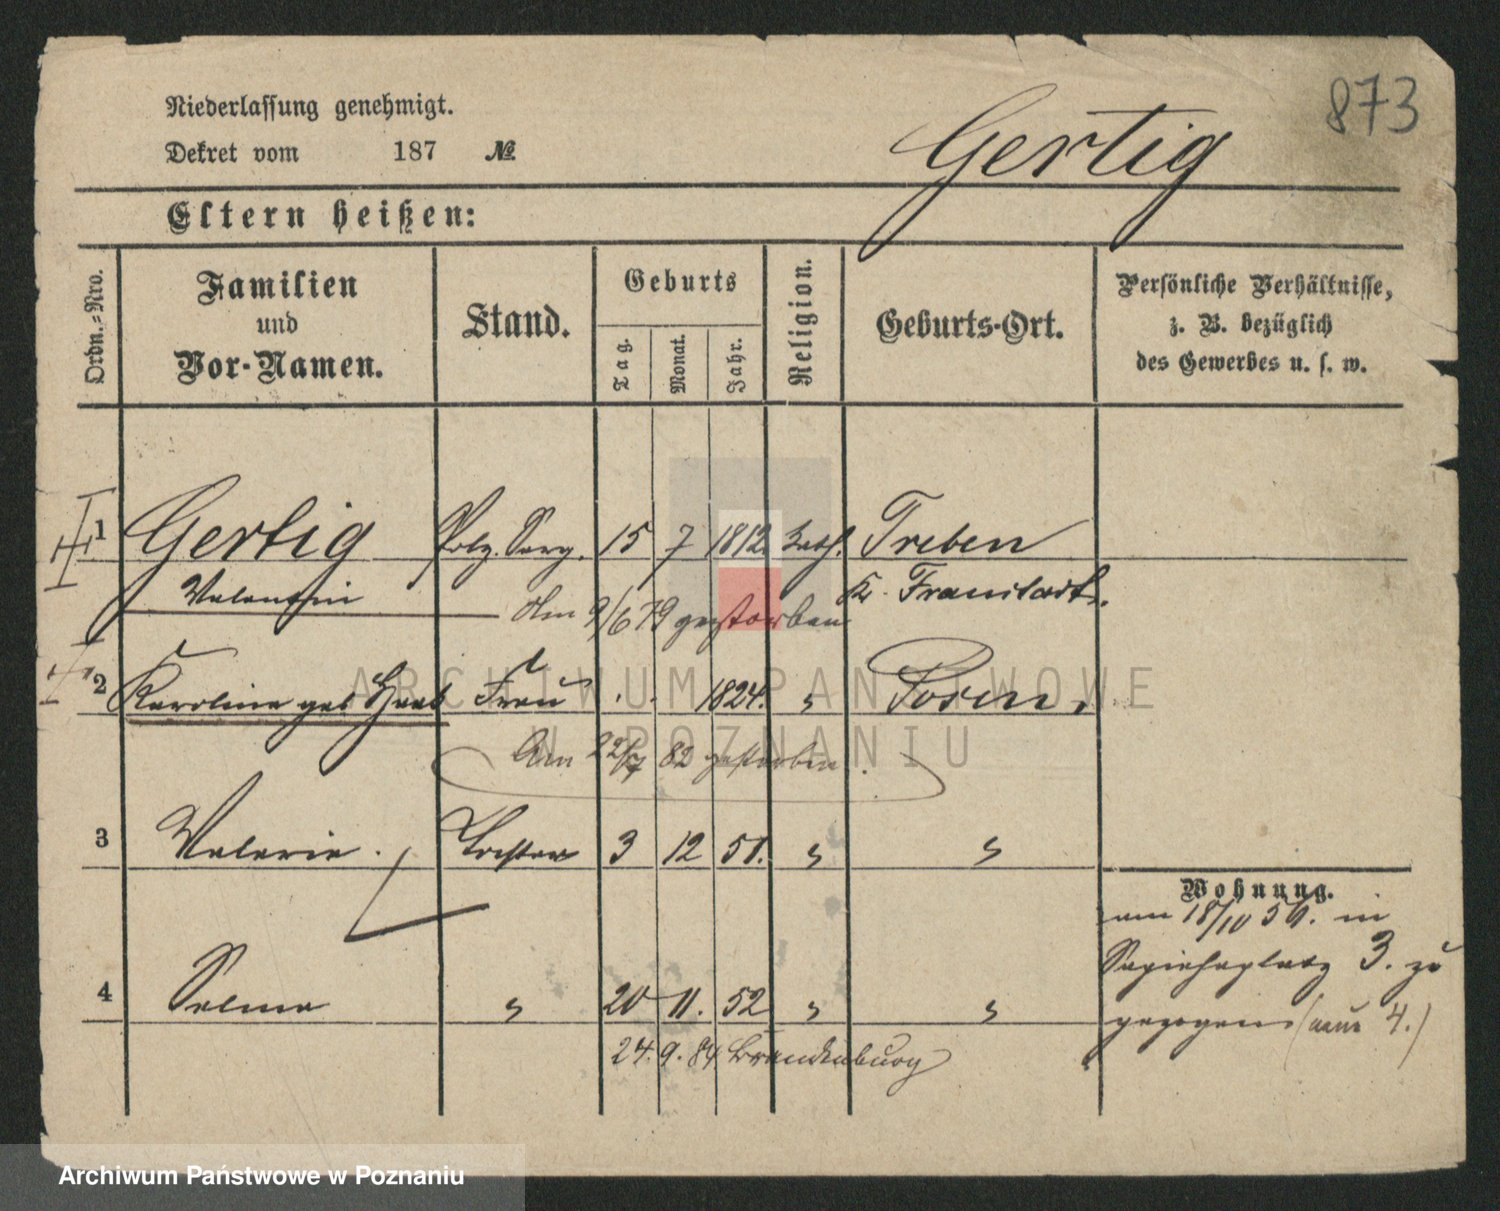 873
Niederlassung genehmigt.
Dekret vom 187 №
Gertig
Eltern heißen:
Ordn.-Nro.
Familien und Vor-Namen.
Stand.
Geburts
Tag.
Monat.
Jahr.
Religion.
Geburts-Ort.
Persönliche Verhältnisse,
z. B. bezüglich
des Gewerbes u. s. w.
1 Gertig 15 7 1812 kath. Treben
Valentin Kr. Fraustadt.
Am 9/6 79 gestorben
2 Karoline geb Frau 1824. " Posen.
Am 22/7 82 gestorben.
3 Valerie. Tochter 3 12 51. " "
Wohnung.
am 18/10 in
Sapiehaplatz 3. zu
gezogen (aus 4.)
4 Selma " 20 11. 52 " "
24.9.84 Brandenburg
ARCHIWUM PAŃSTWOWE
W POZNANIU
Archiwum Państwowe w Poznaniu